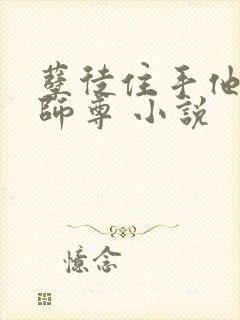 孽徒住手他
師尊 小說
憶念